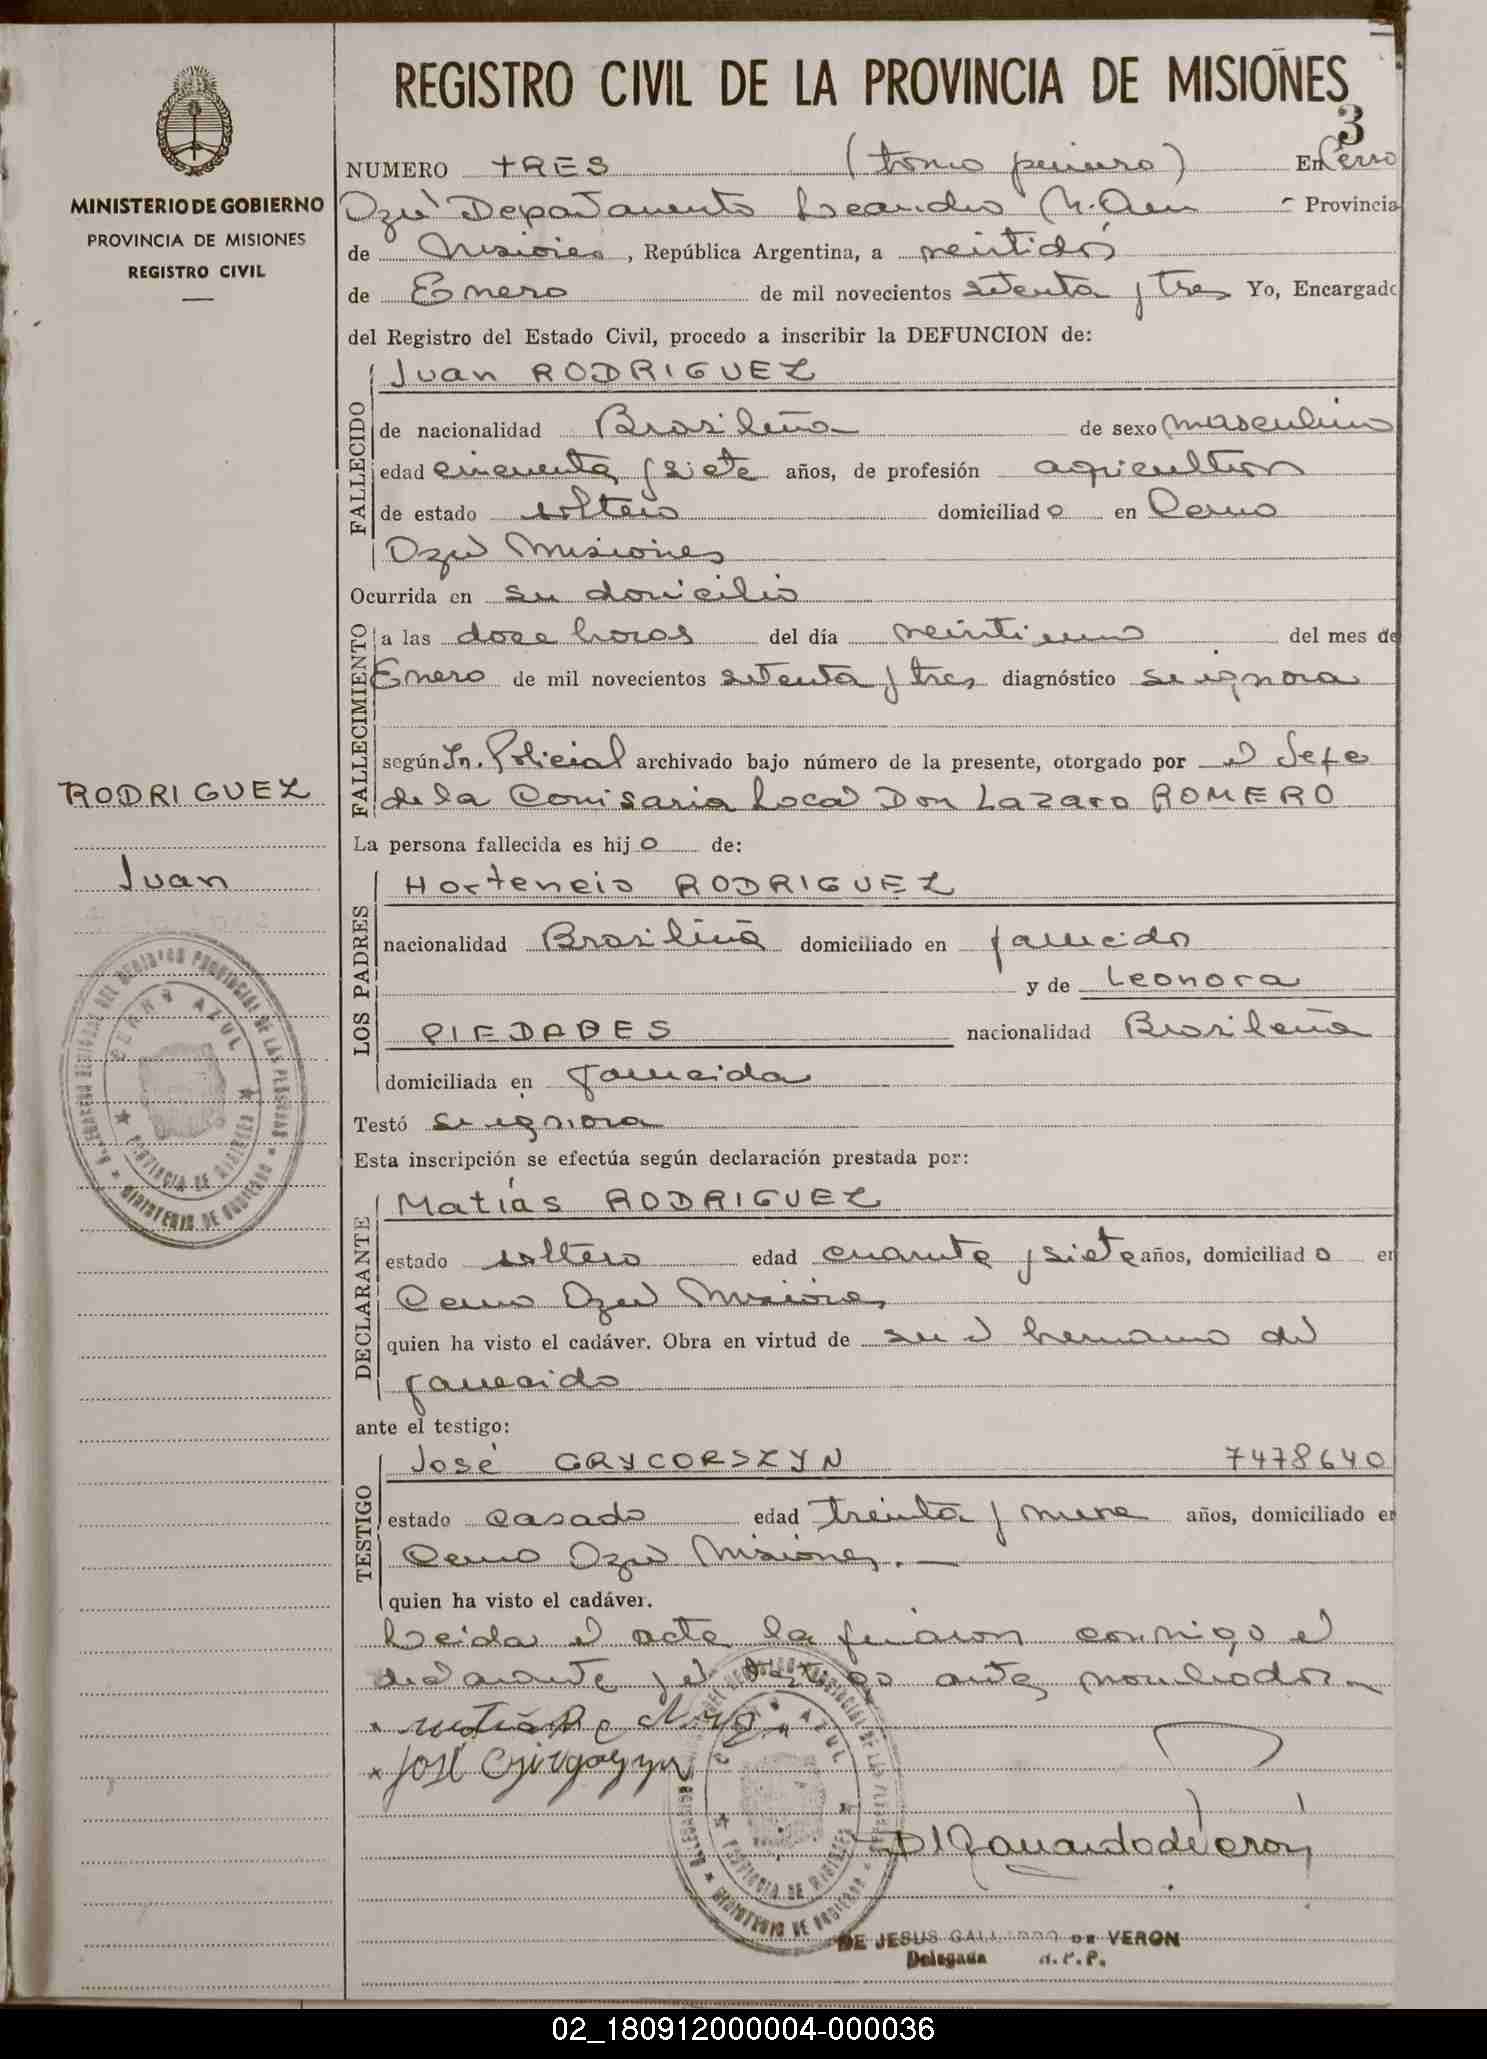 REGISTRO CIVIL DE LA PROVINCIA DE MISIONES
3
MINISTERIO DE GOBIERNO
PROVINCIA DE MISIONES
REGISTRO CIVIL
NUMERO TRES (tomo primero) En Cerro
Azul Departamento Leandro N. Alem - Provincia
de Misiones, República Argentina, a veintidós
de Enero de mil novecientos setenta y tres Yo, Encargado
del Registro del Estado Civil, procedo a inscribir la DEFUNCION de:
FALLECIDO
Juan RODRIGUEZ
de nacionalidad Brasileña de sexo masculino
edad cincuenta y siete años, de profesión agricultor
de estado soltero domiciliado en Cerro
Azul Misiones
Ocurrida en su domicilio
FALLECIMIENTO
a las doce horas del día veintiuno del mes de
Enero de mil novecientos setenta y tres diagnóstico se ignora
según In. Policial archivado bajo número de la presente, otorgado por el Jefe
de la Comisaria Local Don Lazaro ROMERO
RODRIGUEZ
Juan
La persona fallecida es hijo de:
LOS PADRES
Hortencio RODRIGUEZ
nacionalidad Brasileña domiciliado en fallecido
y de Leonora
PIEDADES nacionalidad Brasileña
domiciliada en fallecida
Testó se ignora
Esta inscripción se efectúa según declaración prestada por:
DECLARANTE
Matías RODRIGUEZ
estado soltero edad cuarenta y siete años, domiciliado en
Cerro Azul Misiones
quien ha visto el cadáver. Obra en virtud de ser el hermano del
fallecido
ante el testigo:
TESTIGO
José GRYCORSZYN 7478640
estado casado edad treinta y nueve años, domiciliado en
Cerro Azul Misiones.
quien ha visto el cadáver.
Leida el acta la firmaron conmigo el
declarante y el testigo antes nombrados
CERRO AZUL
PROVINCIA DE MISIONES
MINISTERIO DE GOBIERNO
José
DE JESUS GALLARDO DE VERON
Delegada R.P.P.
02_180912000004-000036